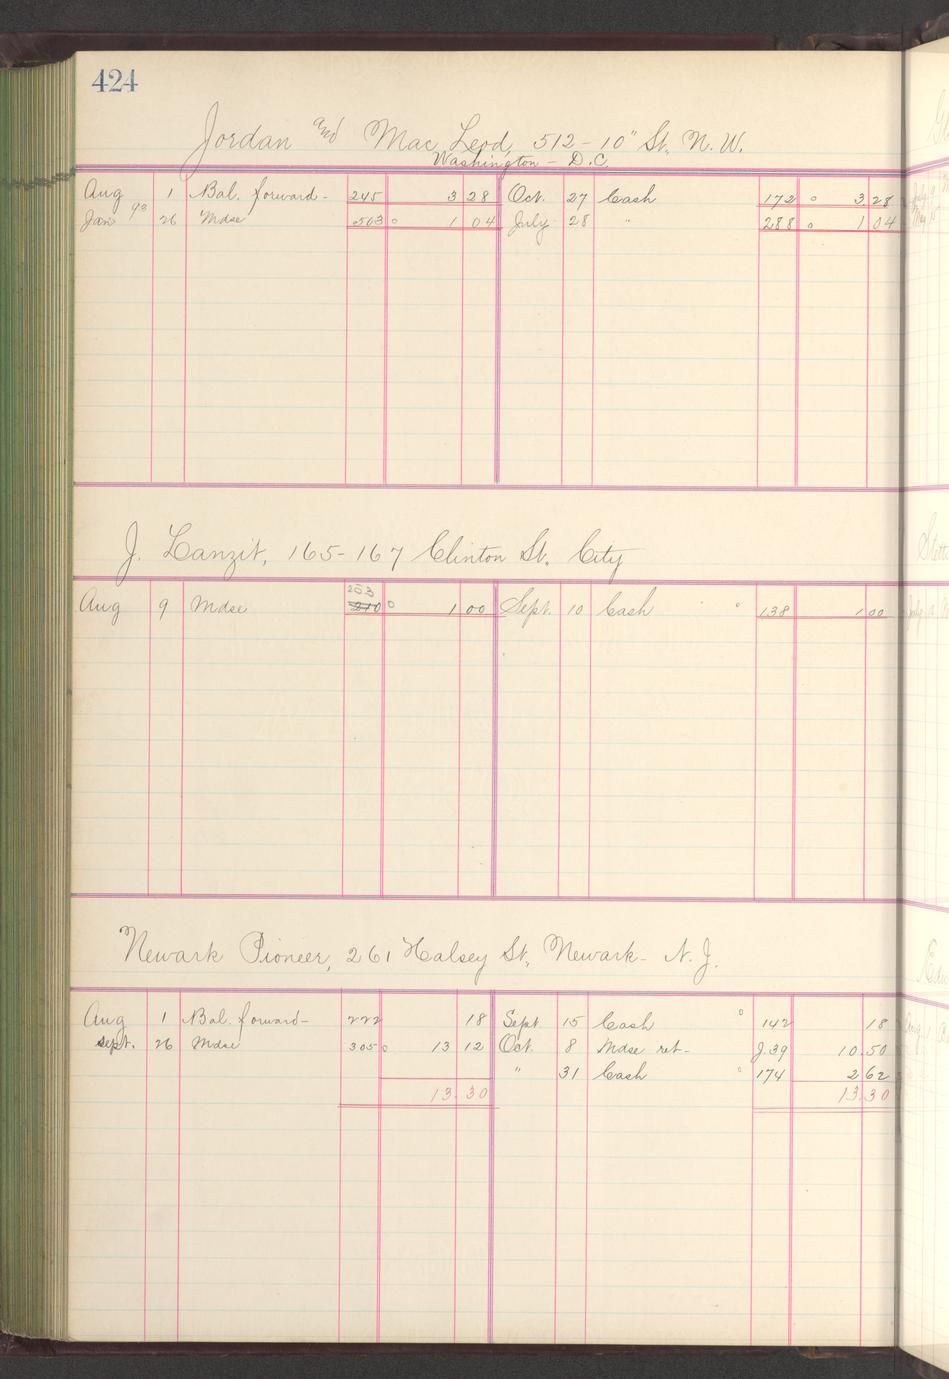 424
Jordan and Mac Leod, 512-10" St. N. W.
Washington - D.C.
Aug 1 Bal. forward- 245 3 28 Oct. 27 Cash 172 o 3 28
Jan 93 26 Mdse 503 o 1 04 July 28 " 288 o 1 04
J. Lanzit, 165-167 Clinton St. City
253
Aug 9 Mdse 210 o 1 00 Sept. 10 Cash o 138 1 00
Newark Pioneer, 261 Halsey St., Newark- N. J.
Aug 1 Bal. forward- 222 18 Sept. 15 Cash o 142 18
Sept. 26 Mdse 305 o 13 12 Oct. 8 Mdse ret- J.39 10.50
" 31 Cash o 174 2 62
13.30 13.30